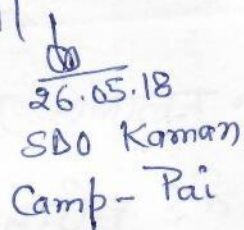 26.05.18
SDO Kaman
Camp - Pai